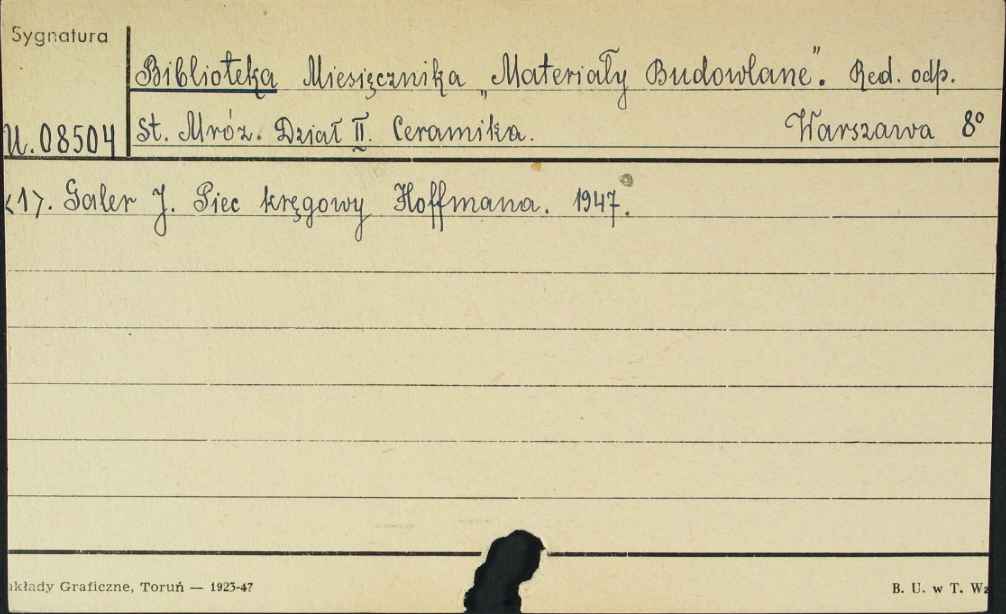 Sygnatura
Biblioteka Miesięcznika „Materiały Budowlane". Red. odp.
U. 08504 St. Mróz. Dział II. Ceramika. Warszawa 8°
<1>. Galer J. Piec kręgowy Hoffmana. 1947.
kłady Graficzne, Toruń — 1923-47
B. U. w T. Wz